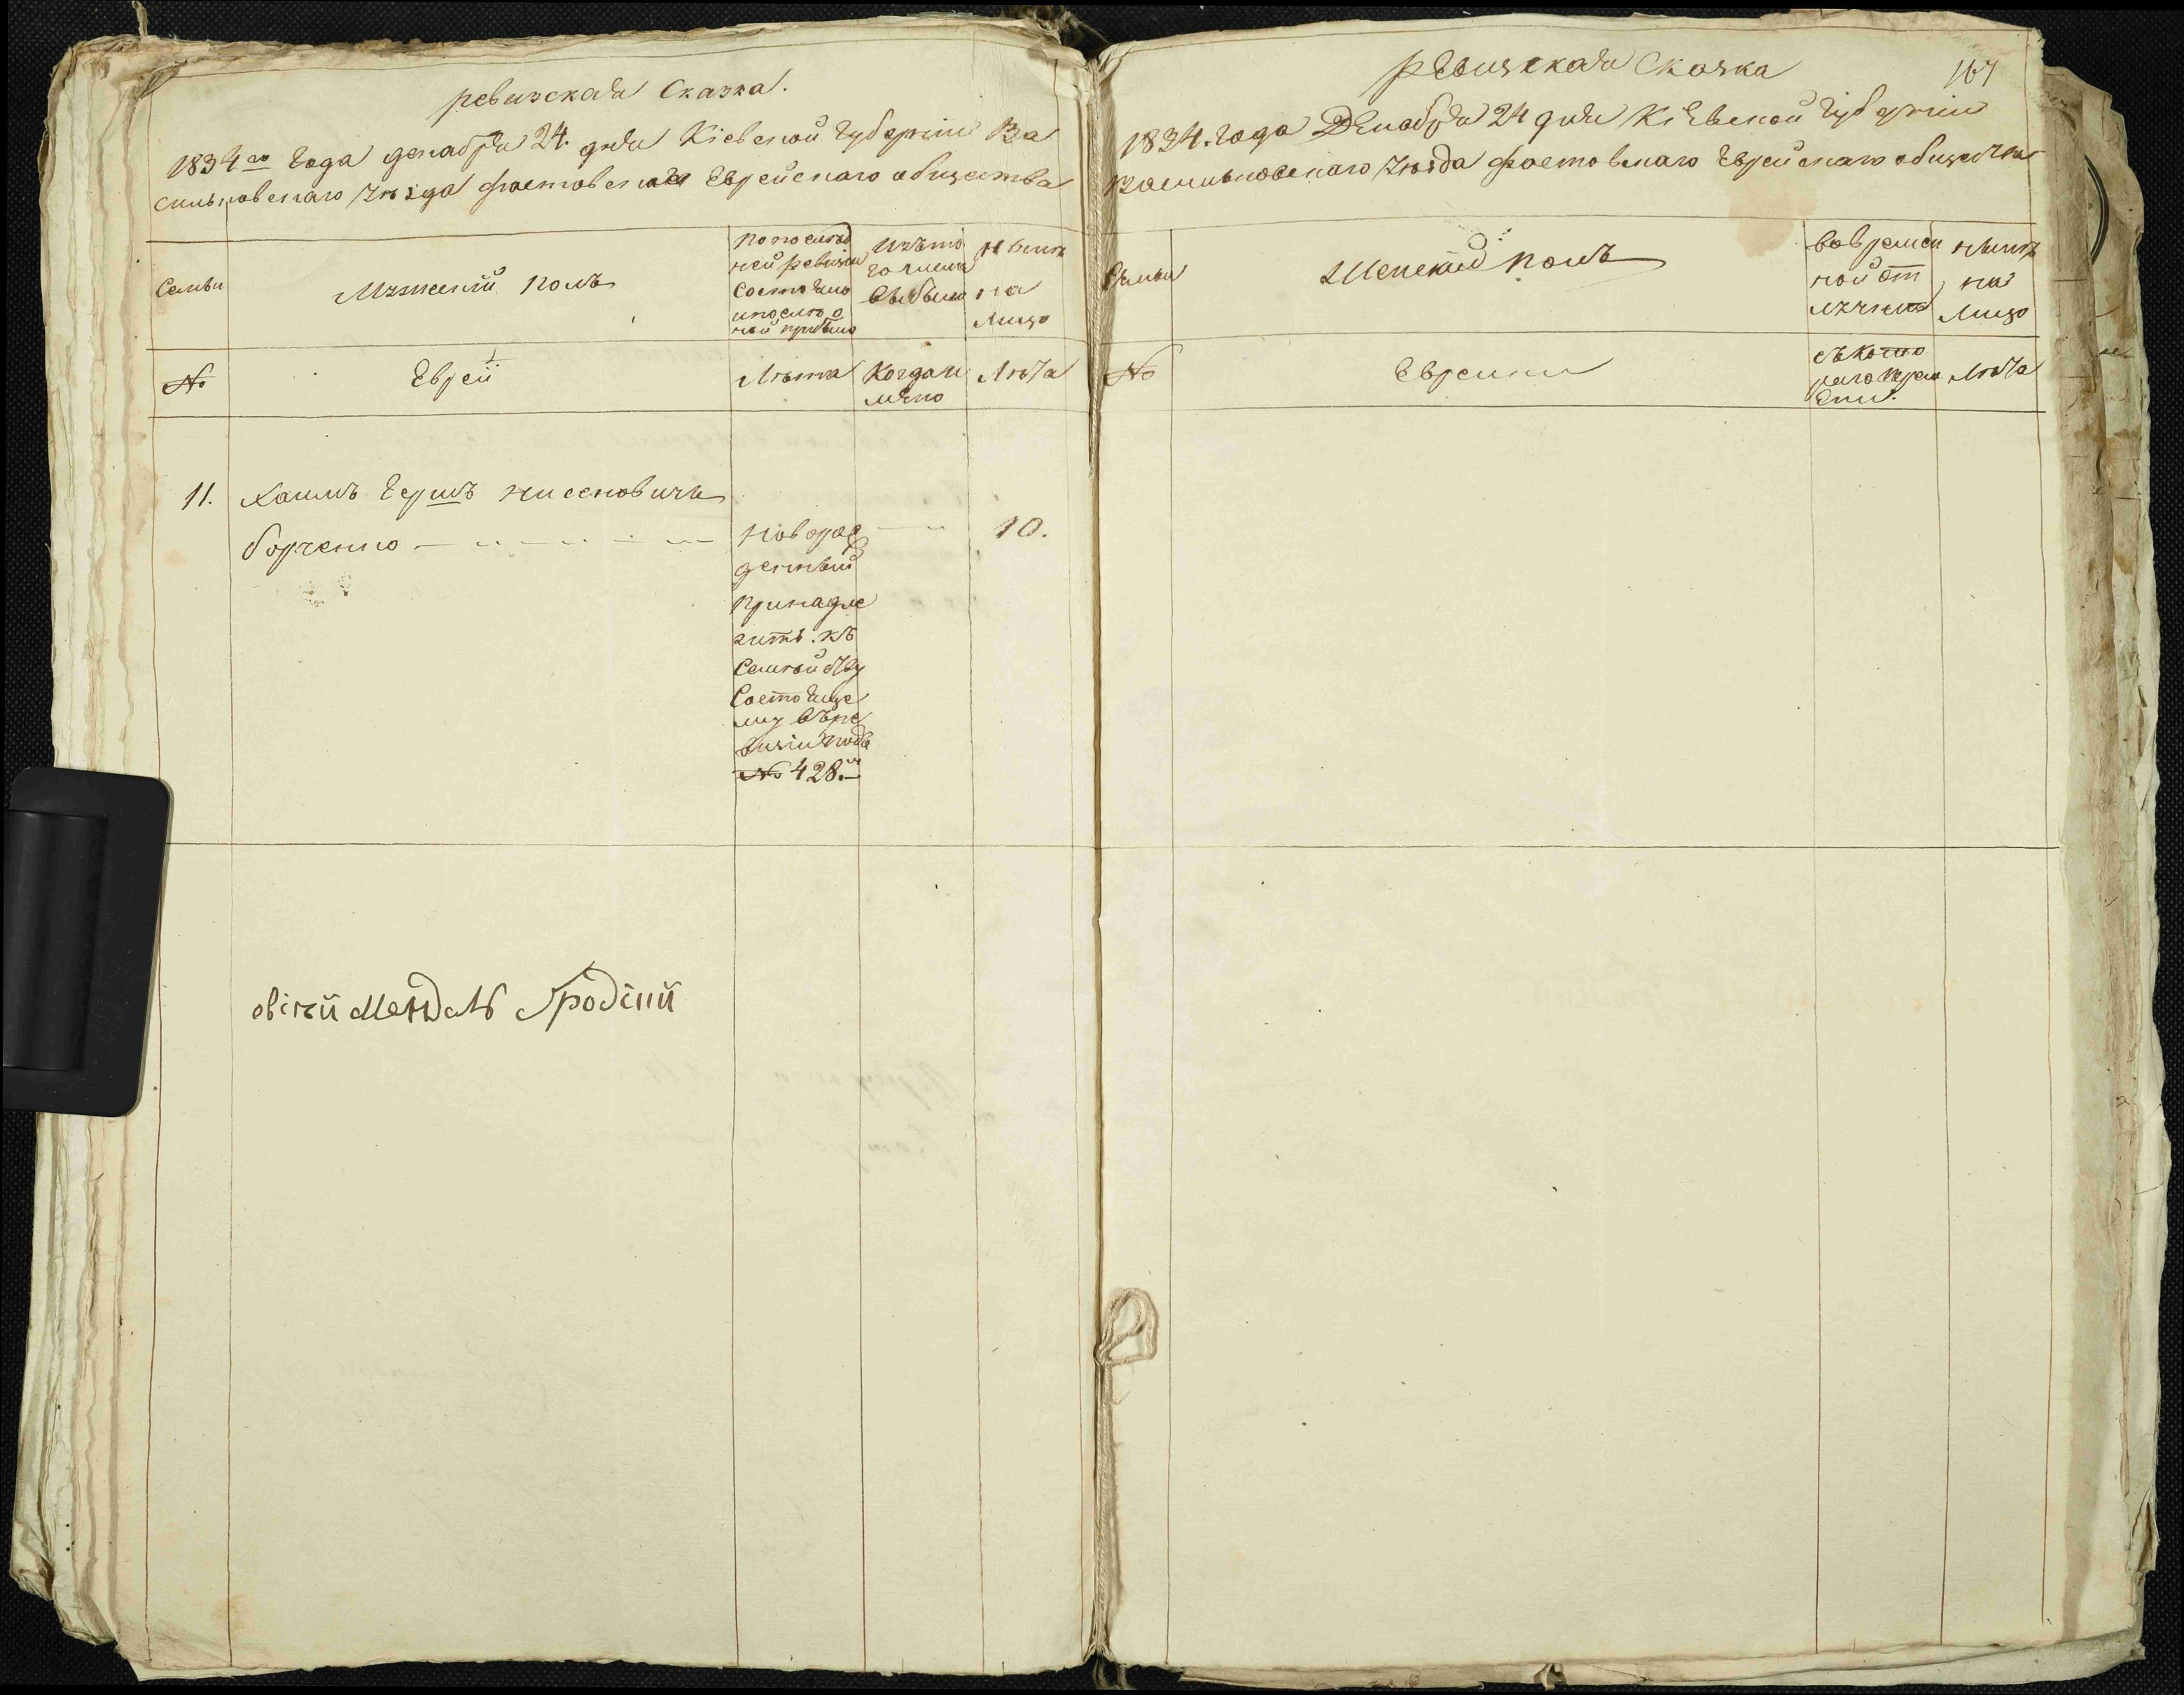 ревизская Сказка.
1834го Года декабря 24. дня Кіевской Губерніи Ва
сильковскаго уѣзда фастовскаго Еврейскаго общества
Семьи
Мужеский полъ
По послѣд
ней ревизіи
Состояло
и послѣ о
ной прибыло
Изъ то
го числа
Выбыло
Нынѣ
на
Лицо
№
Евреи
Лѣта
Когда и
мѣно
Лѣта
11. Хаимъ Гершъ Нисеновичъ
борченко
Новорож
денный
принадле
житъ къ
Состояще
му въ ре
визіи подъ
№ 428.
10.
Мендель
ревизская Сказка
167
1834. Года Декабря 24 дня Кіевской Губерніи
Васильковскаго уѣзда фастовскаго Еврейскаго общества
Семьи
Женский полъ
во времен
ной от
лучкѣ
Нынѣ
на
Лицо
№
Евреики
съ кото
раго врем
ени.
Лѣта